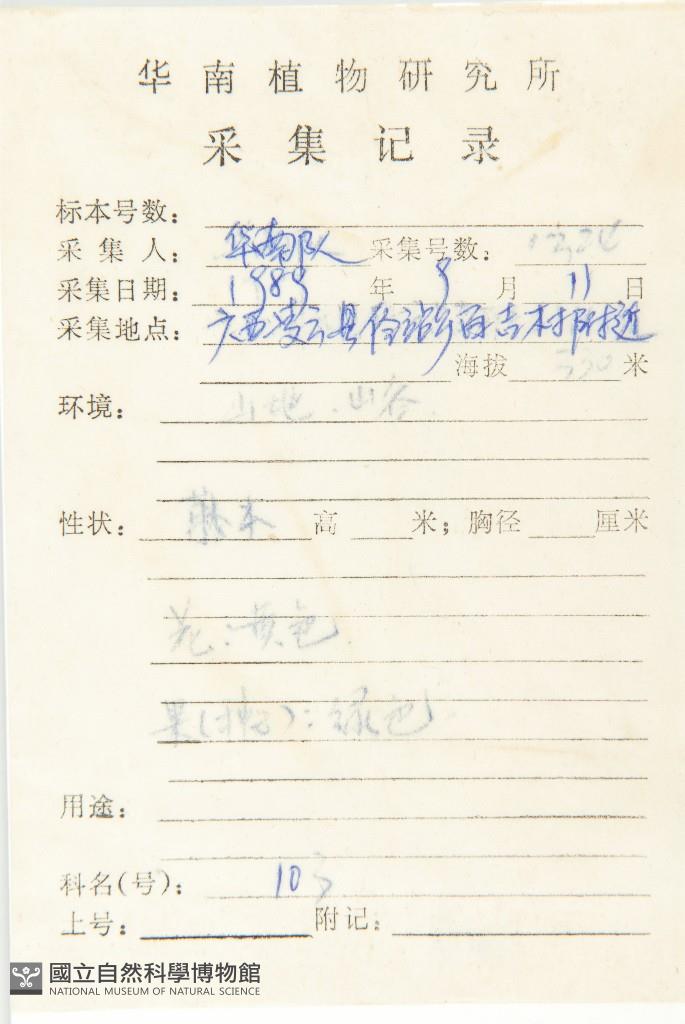 华南植物研究所
采集记录
标本号数：
采集人：华南队 采集号数：
采集日期：1989年9月11日
采集地点：广西凌云县伶站乡百吉村附近
海拔 米
环境：山地.山谷.
性状：藤本 高 米；胸径 厘米
花：黄色.
果(种子)：绿色.
用途：
科名(号)：103
上号： 附记：
國立自然科學博物館
NATIONAL MUSEUM OF NATURAL SCIENCE